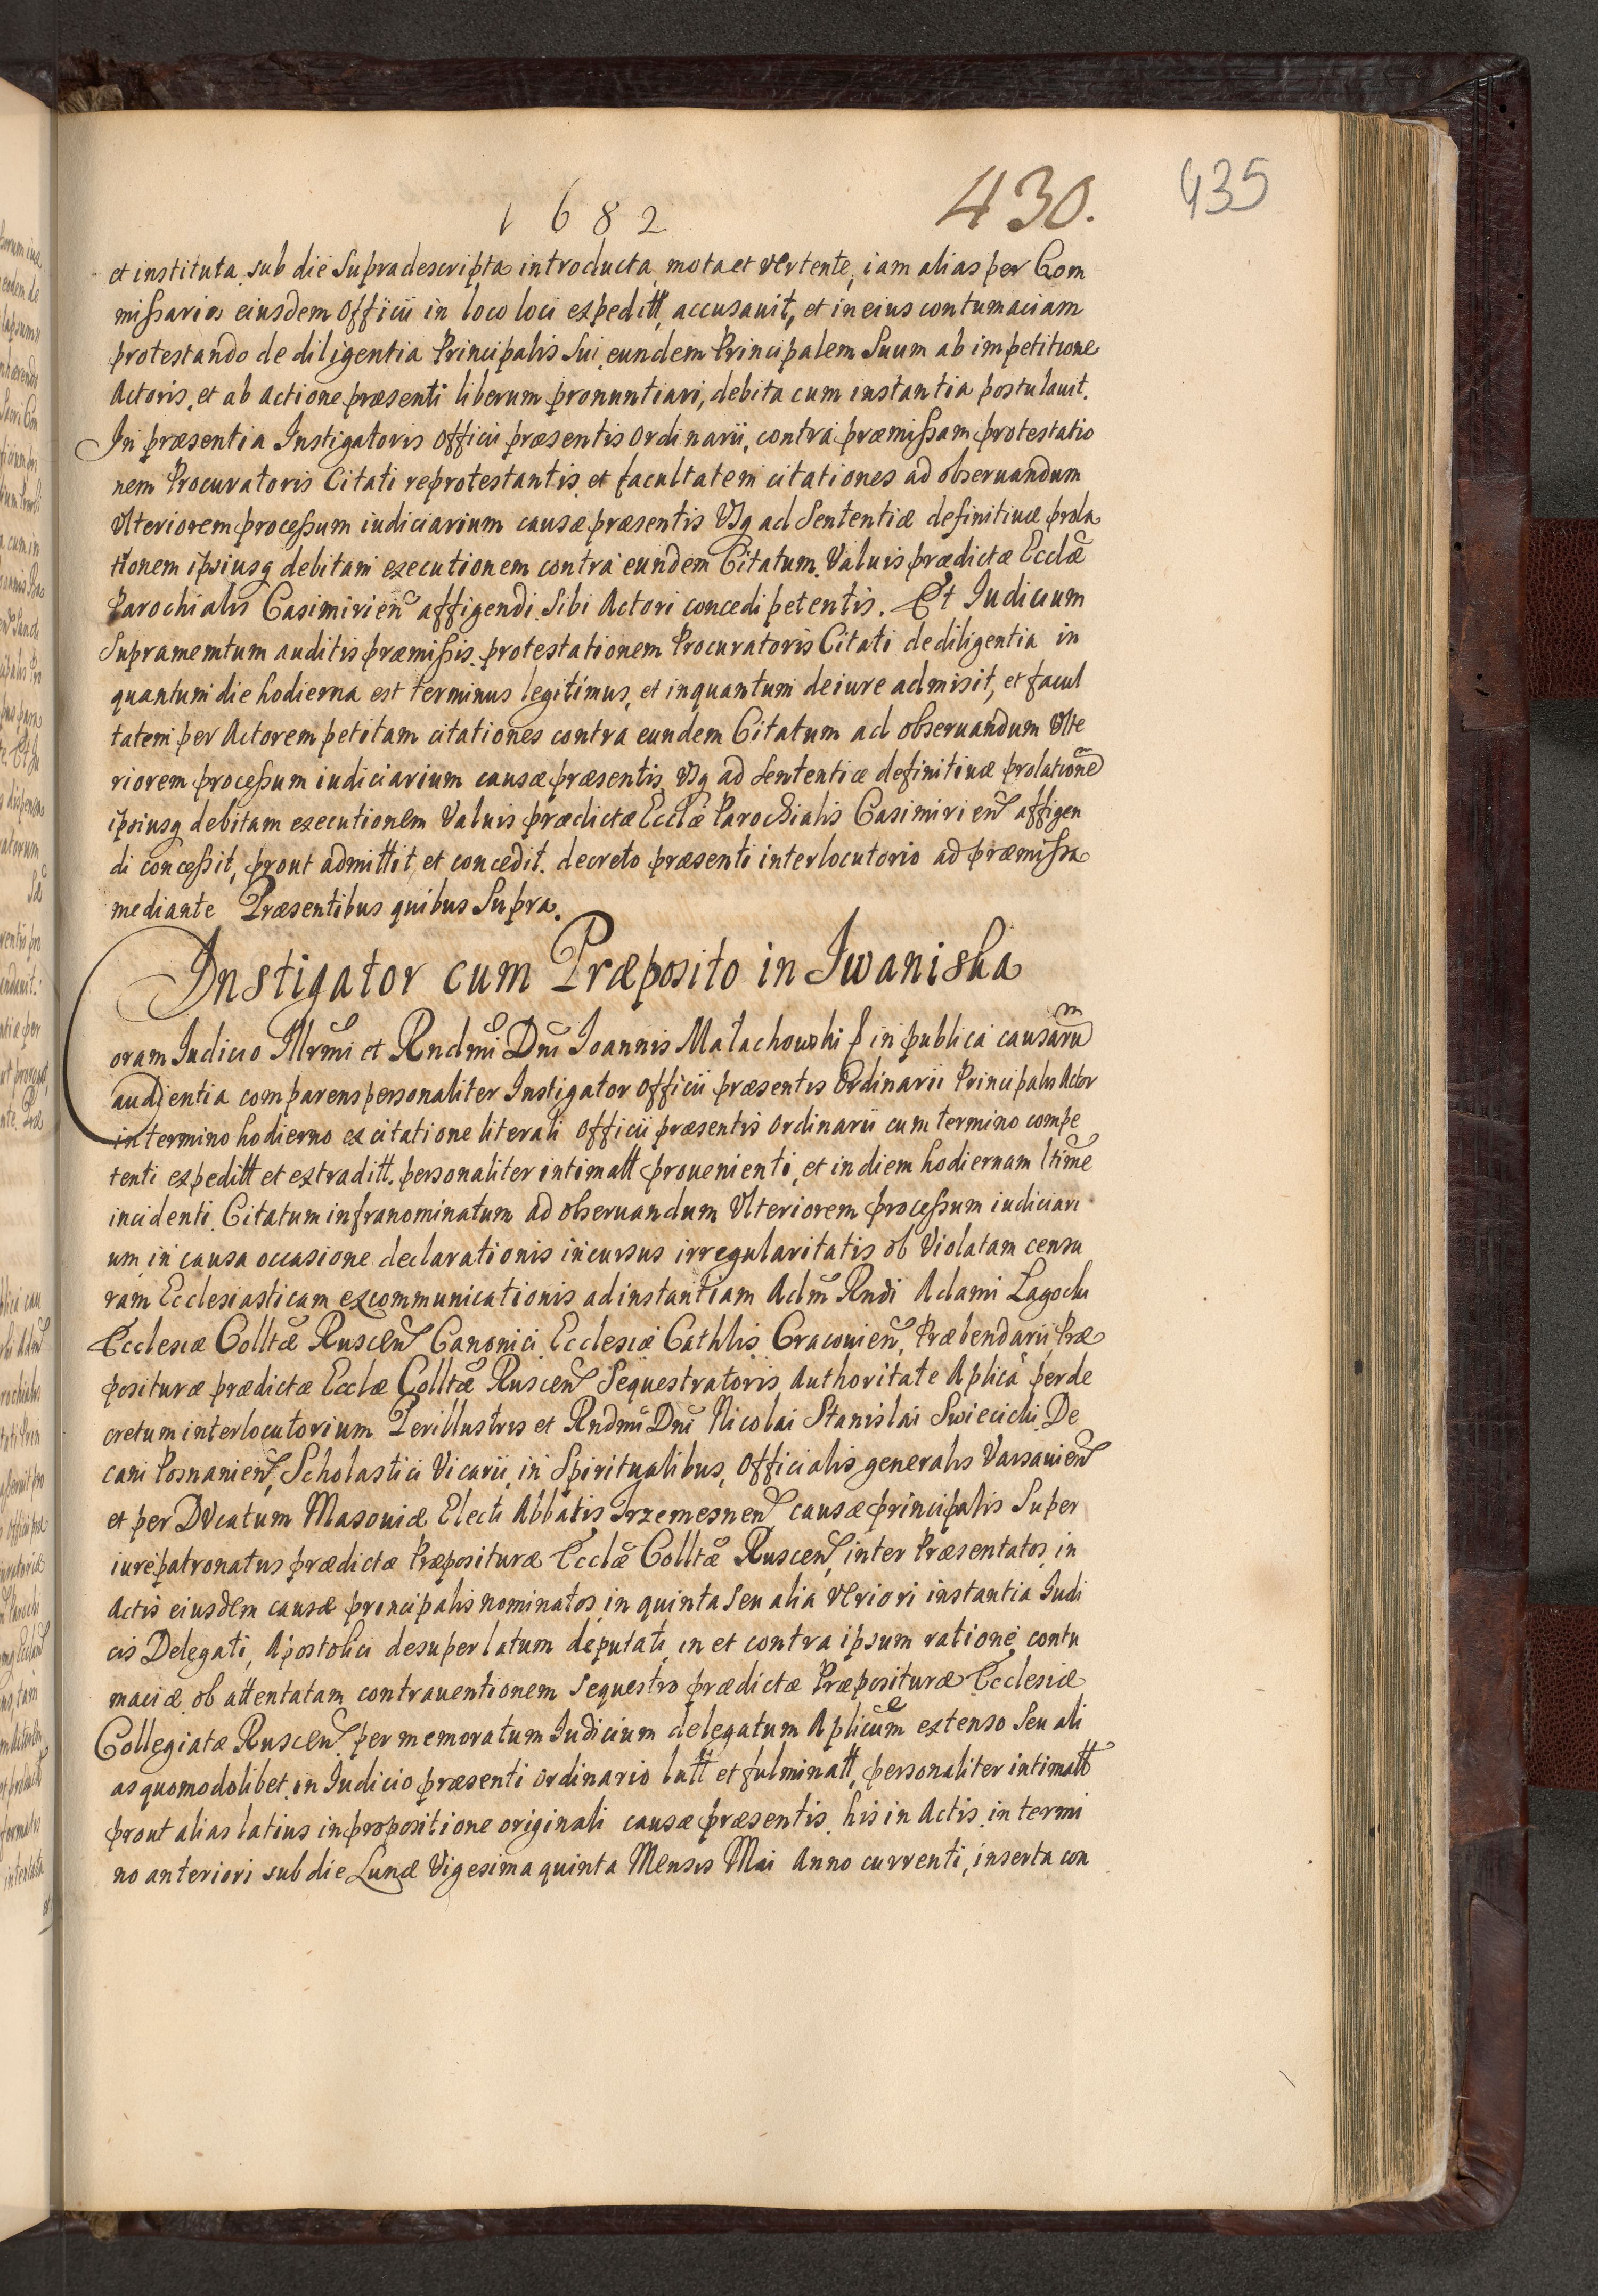 1682
430.
435
et instituta sub die supradescripta introducta mota et vertente, iam alias per Com
missarios eiusdem Officii in loco loci expeditt, accusauit, et in eius contumaciam
protestando de diligentia Principalis Sui eundem Principalem Suum ab impetitione
Actoris, et ab actione præsenti liberum pronuntiari, debita cum instantia postulauit.
In præsentia Instigatoris Officii præsentis ordinarii, contra præmissam protestatio
nem Procuratoris Citati reprotestantis, et facultatem citationes ad obseruandum
Vlteriorem processum iudiciarium causæ præsentis Vsq ad Sententiæ definitiuæ prola
tionem ipsiusq debitam executionem contra eundem Citatum. Valuis prædictæ Ecclæ
Parochialis Casimirien affigendi Sibi Actori concedi petentis. Et Iudicium
Supramemtum auditis præmissis protestationem Procuratoris Citati de diligentia in
quantum die hodierna est terminus legitimus, et inquantum de iure admisit, et facul
tatem per Actorem petitam citationes contra eundem Citatum ad obseruandum Vlte
riorem processum iudiciarium causæ præsentis, Vsq ad Sententiæ definitiuæ prolationem
ipsiusq debitam executionem Valuis prædictæ Ecclæ Parochialis Casimirien affigen
di concessit, prout admittit, et concedit. decreto præsenti interlocutorio ad præmissa
mediante Præsentibus quibus Supra.
Instigator cum Præposito in Iwaniska
Coram Iudicio Illrmi et Rndmi Dni Ioannis Małachowski ꝑ in publica causarum
audientia comparens personaliter Instigator Officii præsentis Ordinarii Principalis Actor
in termino hodierno ex citatione literali Officii præsentis ordinarii cum termino compe
tenti expeditt et extraditt. personaliter intimatt prouenienti, et in diem hodiernam ltime
incidenti Citatum infranominatum ad obseruandum Vlteriorem processum iudiciari
um in causa occasione declarationis incursus irregularitatis ob Violatam censu
ram Ecclesiasticam excommunicationis ad instantiam Adm Rndi Adami Lagocki
Ecclesiæ Colltæ Ruscen Canonici Ecclesiæ Cathlis Cracouien, Præbendarii Præ
posituræ prædictæ Ecclæ Colltæ Ruscen Sequestratoris Authoritate Aplica per de
cretum interlocutorium Perillustris et Rndmi Dni Nicolai Stanislai Swiecicki De
cani Posnanien, Scholastici Vicarii in Spiritualibus, Officialis generalis Varsauien
et per Ducatum Masouiæ Electi Abbatis Trzemesnen causæ principalis Super
iurepatronatus prædictæ Præposituræ Ecclæ Colltæ Ruscen, inter Præsentatos in
Actis eiusdem causæ principalis nominatos in quinta Seu alia Veriori instantia Iudi
cis Delegati, Apostolici desuper latum deputati in et contra ipsum ratione contu
maciæ ob attentatam contrauentionem sequestro prædictæ Præposituræ Ecclesiæ
Collegiatæ Ruscen per memoratum Iudicium delegatum Aplicum extenso Seu ali
as quomodolibet in Iudicio præsenti ordinario latt et fulminatt, personaliter intimatt
prout alias latius in propositione originali causæ præsentis his in Actis in termi
no anteriori sub die Lunæ Vigesima quinta Mensis Mai Anno currenti, inserta con